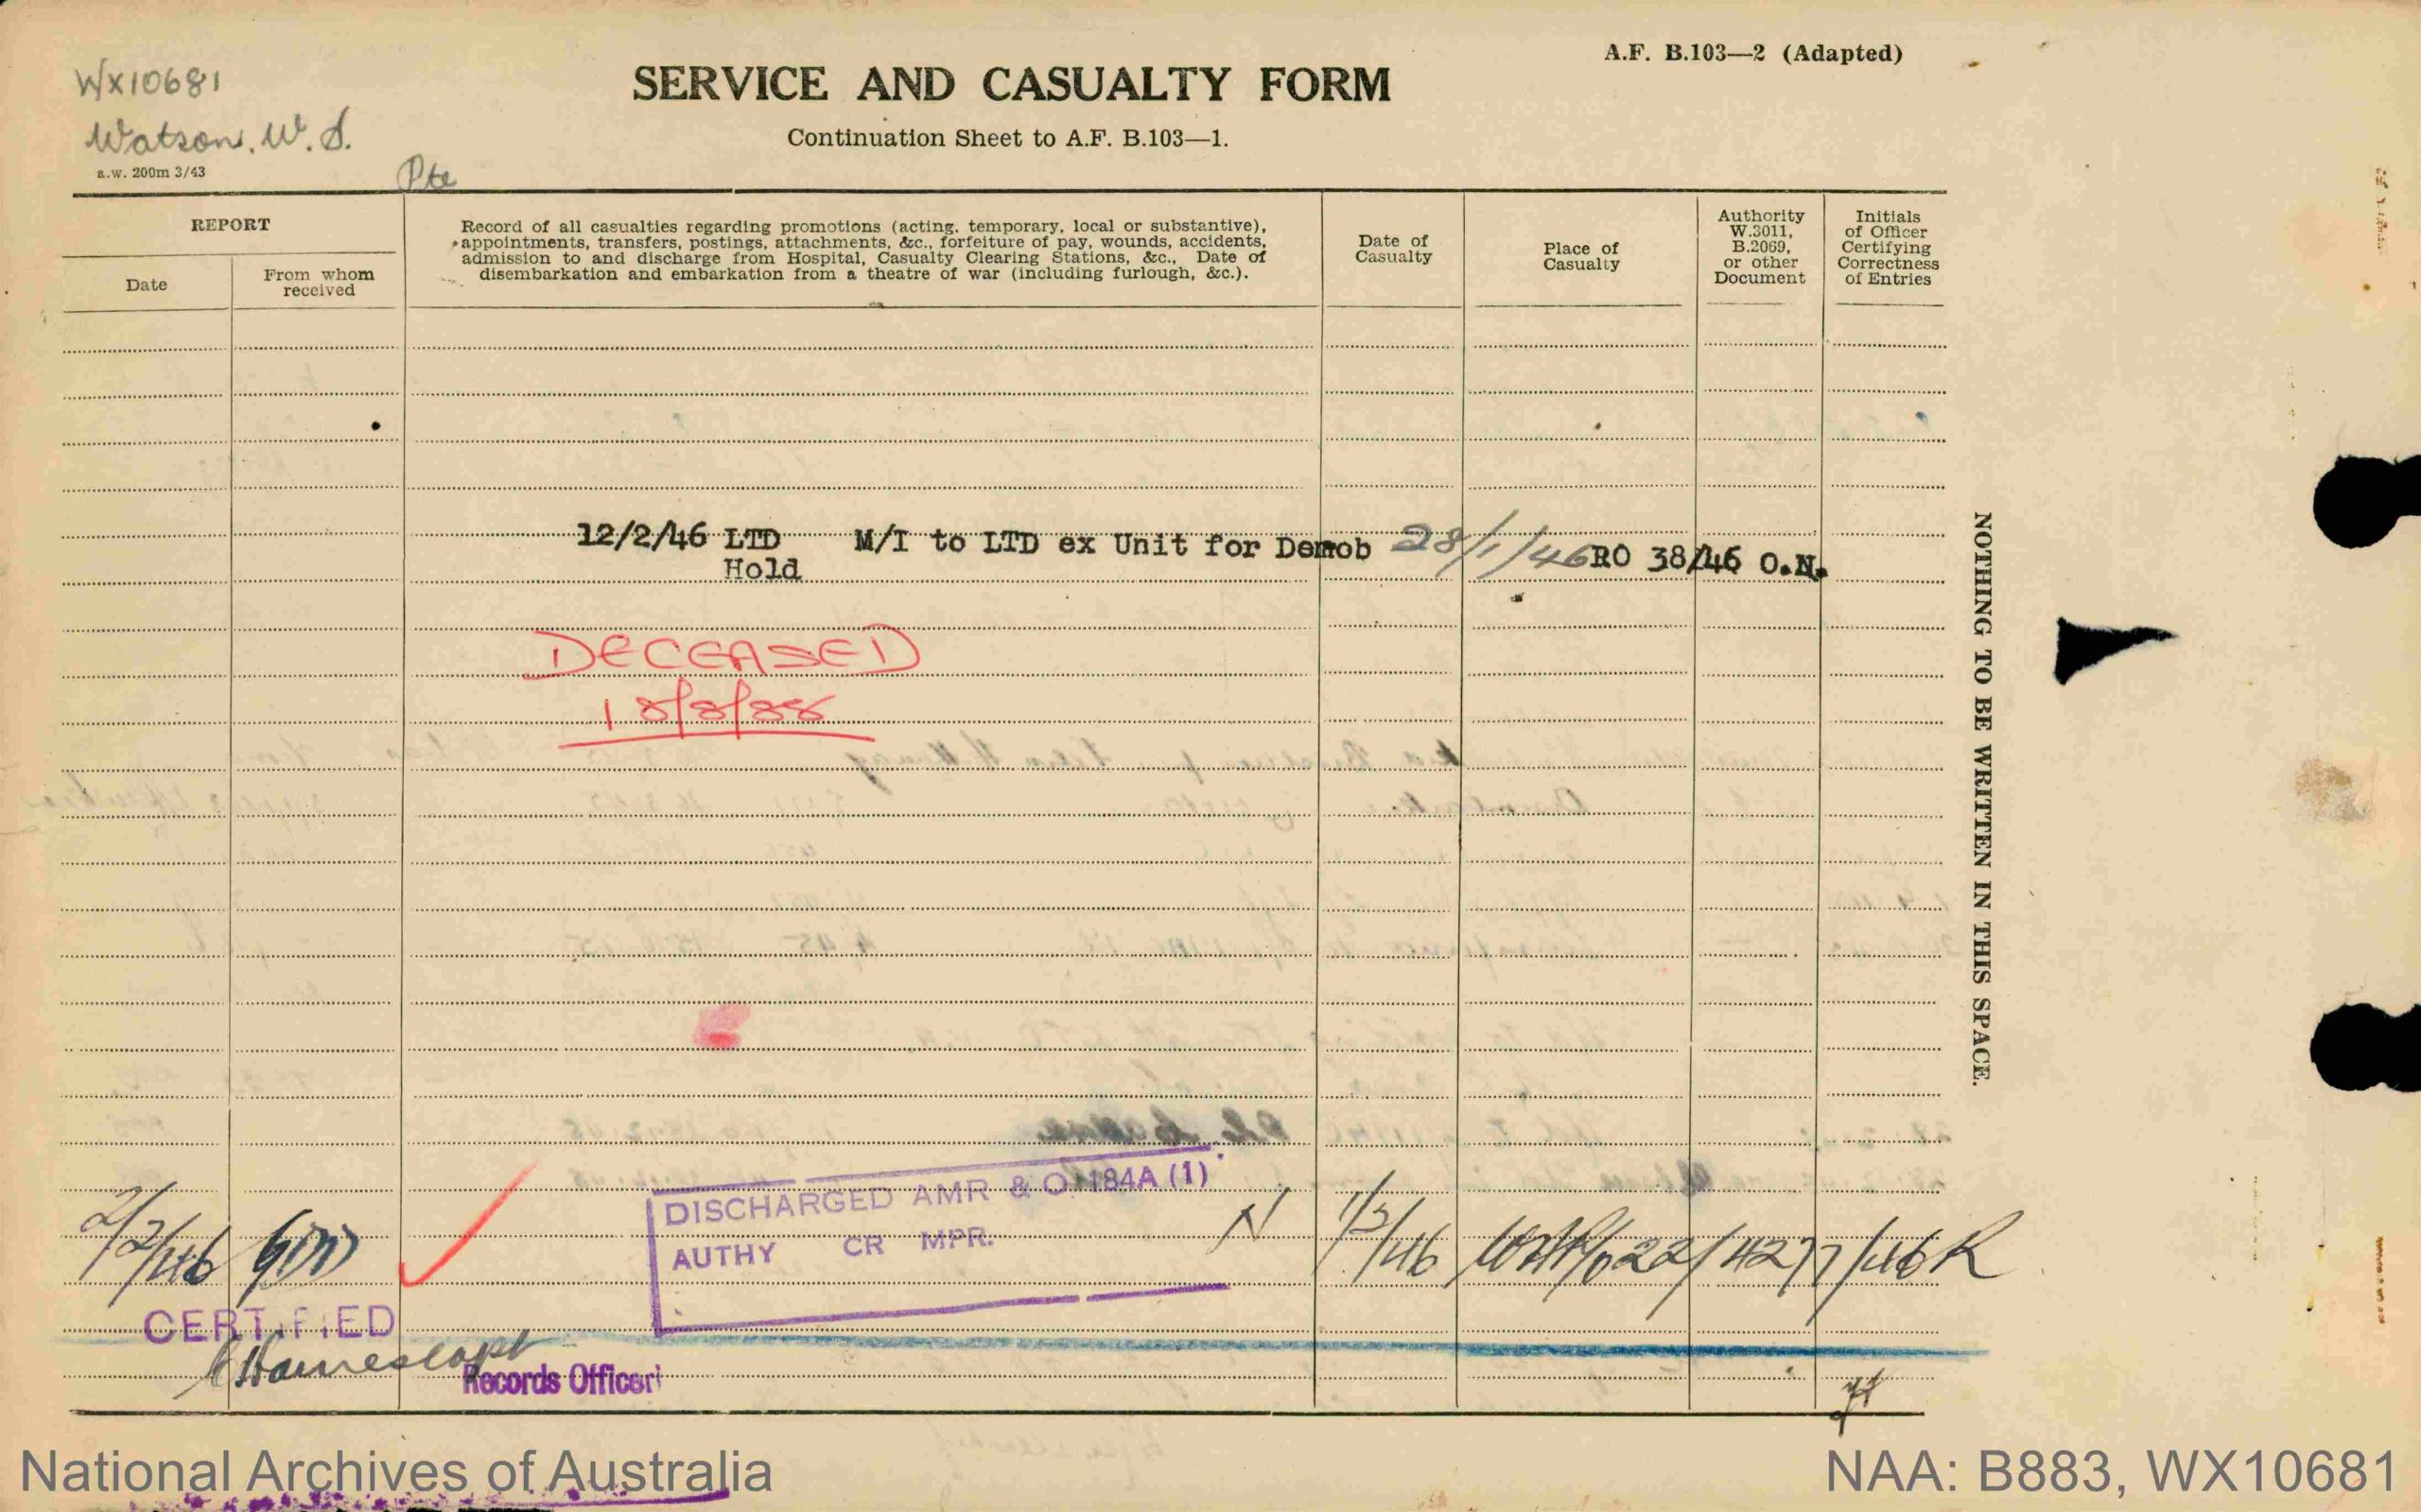 WX10681
Watson. W. S.
a.w. 200m 3/43
Pte
A.F. B.103—2 (Adapted)
SERVICE AND CASUALTY FORM
Continuation Sheet to A.F. B.103—1.
REPORT
Date
From whom
received
Record of all casualties regarding promotions (acting, temporary, local or substantive),
appointments, transfers, postings, attachments, &c., forfeiture of pay, wounds, accidents,
admission to and discharge from Hospital, Casualty Clearing Stations, &c., Date of
disembarkation and embarkation from a theatre of war (including furlough, &c.).
Date of
Casualty
Place of
Casualty
Authority
W.3011,
B.2069,
or other
Document
Initials
of Officer
Certifying
Correctness
of Entries
12/2/46 LTD M/I to LTD ex Unit for Demob 28/1/46 RO 38/46 O.N.
Hold
DECEASED
18/8/88
DISCHARGED AMR & O. 184A (1)
AUTHY CR MPR.
N
CERTIFIED
Capt
Records Officer
NOTHING TO BE WRITTEN IN THIS SPACE.
National Archives of Australia
NAA: B883, WX10681